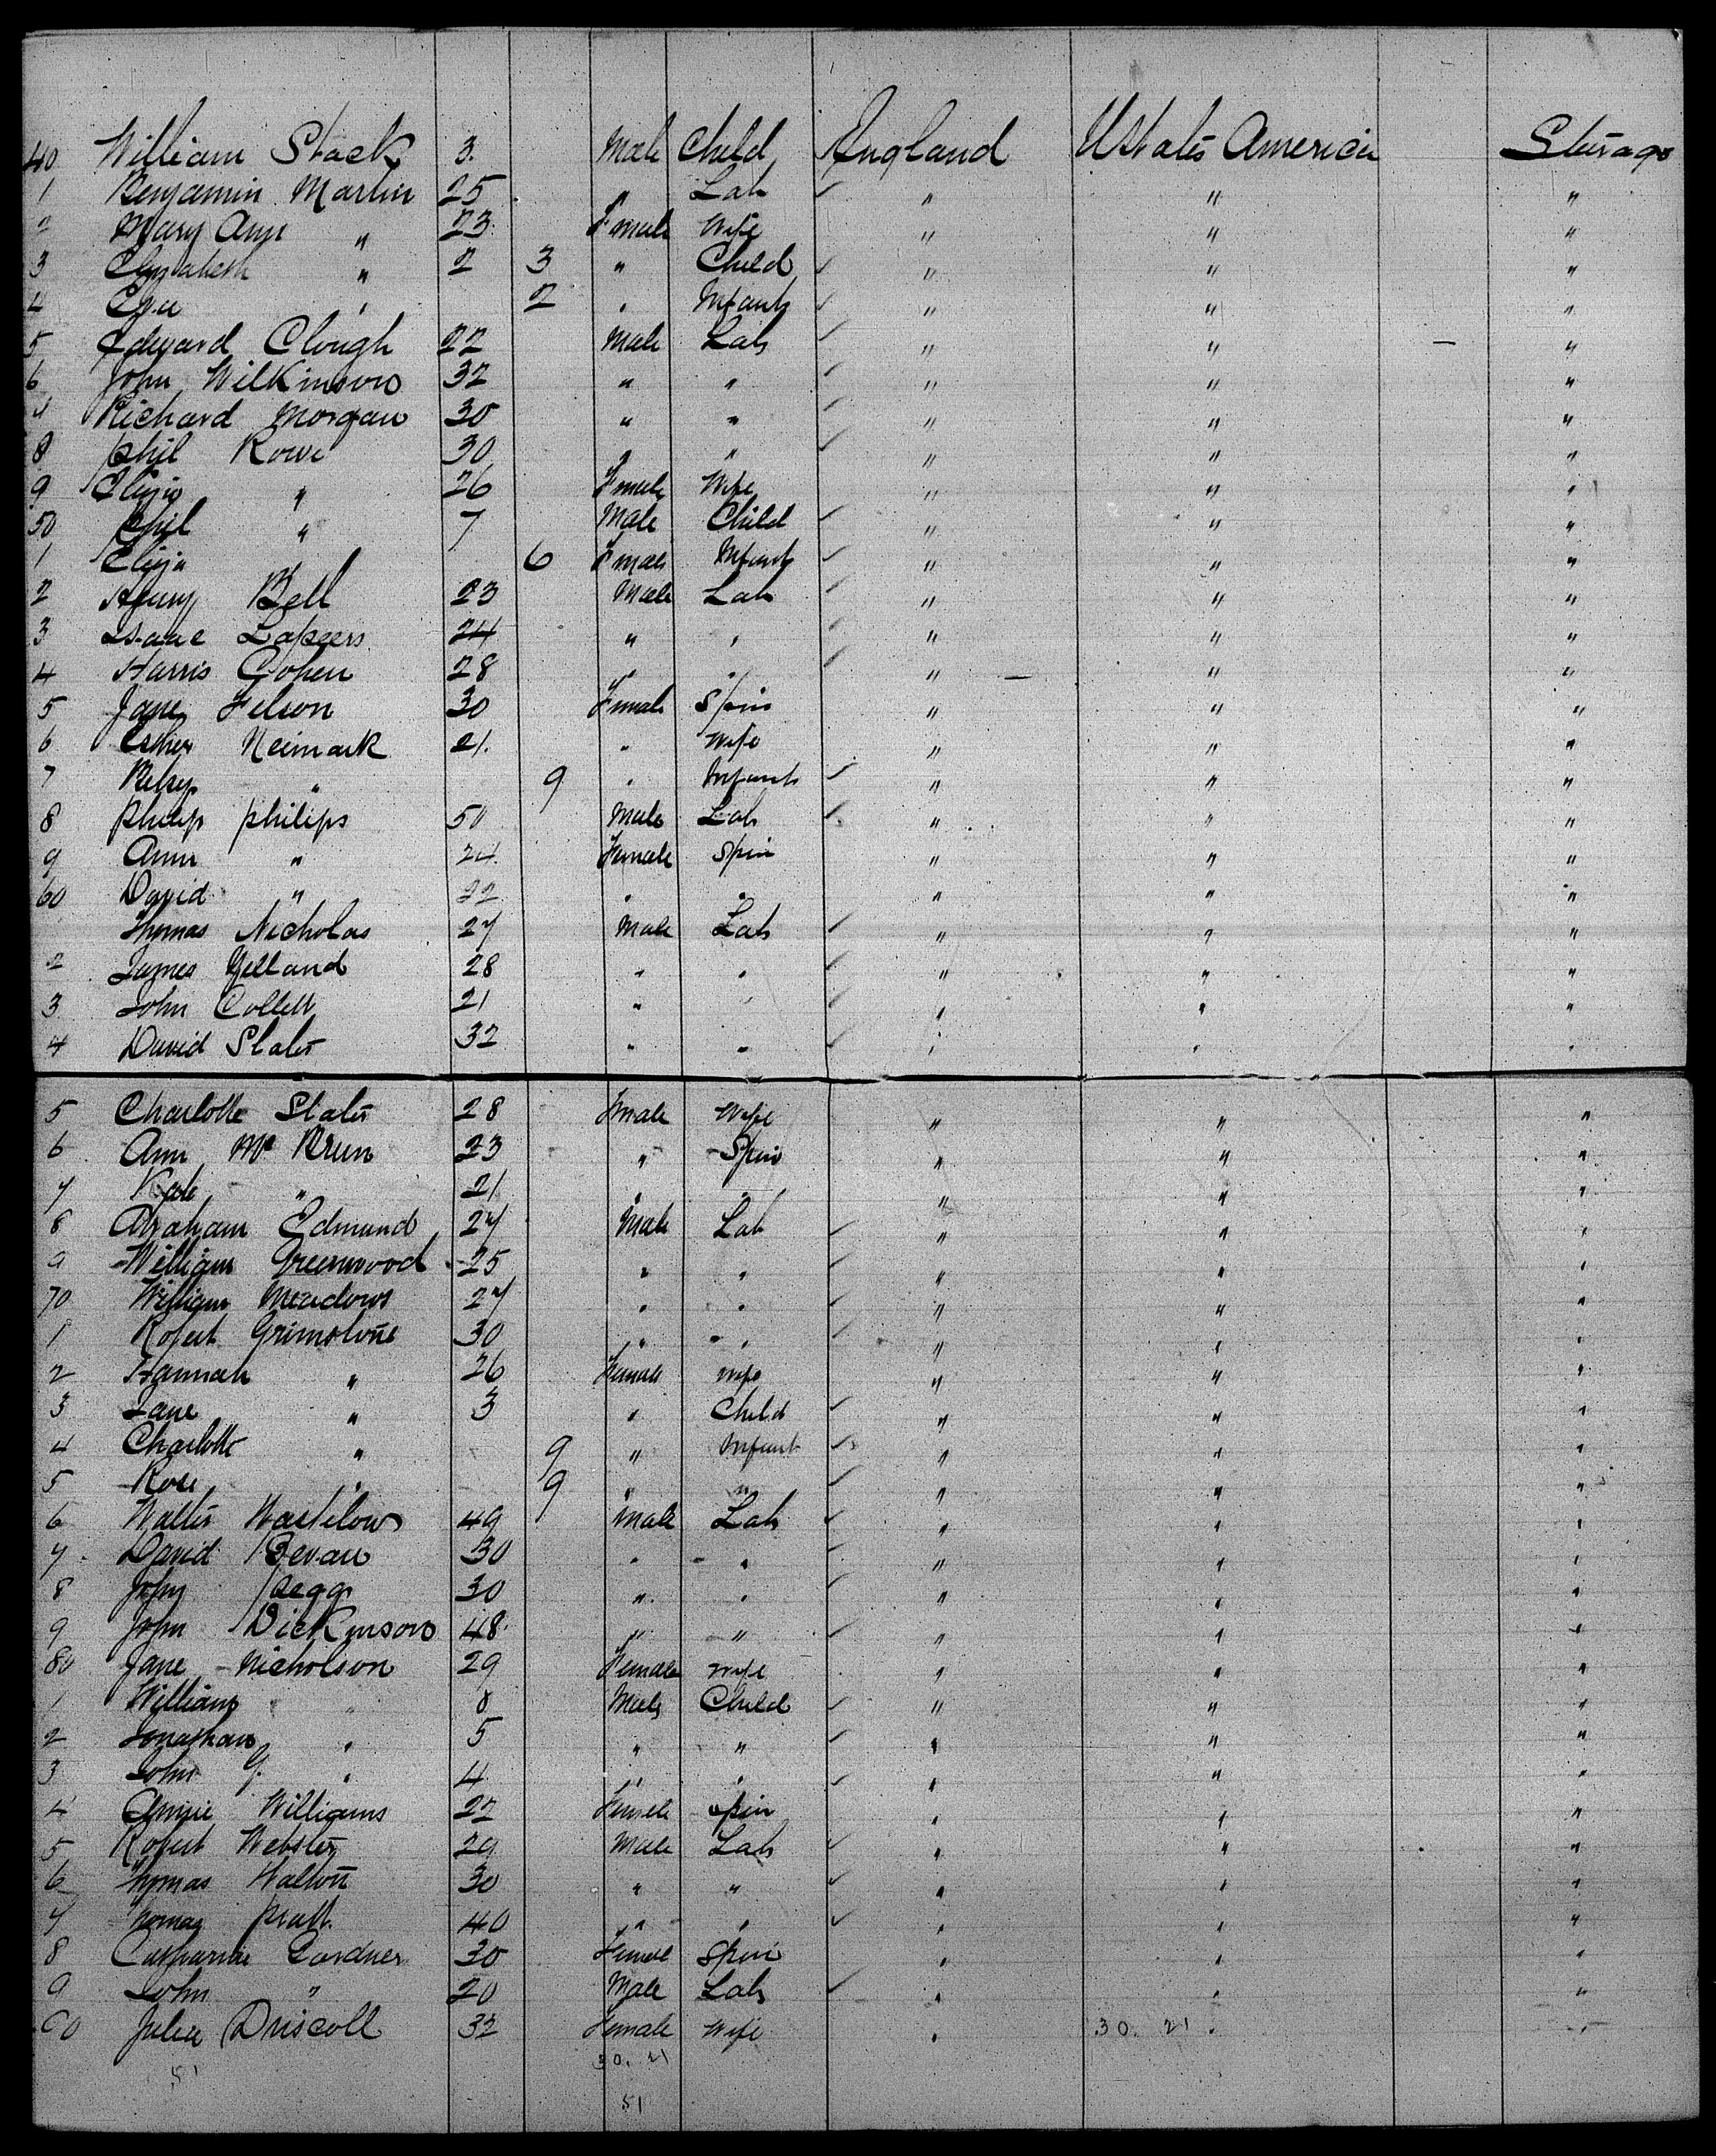 40 William Stack 3. Male Child England UStates America Sterage
1 Benjamin Martin 25 " Lab " " "
2 Mary Ann " 23 Female Wife " " "
3 Elizabeth " 2 3 " Child " " "
4 " 2 " Infant " " "
5 Edward Clough 22 Male Lab " " "
6 John Wilkinson 32 " " " " "
7 Richard Morgan 30 " " " " "
8 Phil Rowe 30 " " " " "
9 Eliza " 26 Female Wife " " "
50 Phil " 7 Male Child " " "
1 Eliza " 6 Female Infant " " "
2 Henry Bell 23 Male Lab " " "
3 Isaac 24 " " " " "
4 Harris Cohen 28 " " " " "
5 Jane Felson 30 Female Spin " " "
6 Esther Neimark 21. " Wife " " "
7 Betsy " 9 " Infant " " "
8 Philip Philips 50 Male Lab " " "
9 Ann " 24 Female Spin " " "
60 David " 22 " " " " "
Thomas Nicholas 27 Male Lab " " "
2 James Yelland 28 " " " " "
3 John Collett 21 " " " " "
4 David Slater 32 " " " " "
5 Charlotte Slater 28 Female Wife " " "
6 Ann Mc 23 " Spin " " "
7 Kate " 21 " " " " "
8 Abraham Edmund 27 Male Lab " " "
9 William Greenwood 25 " " " " "
70 William Meadows 27 " " " " "
1 Robert Grimstone 30 " " " " "
2 Hannah " 26 Female Wife " " "
3 Jane " 3 " Child " " "
4 Charlotte " 9 " Infant " " "
5 Rose " 9 " " " " "
6 Walter 49 Male Lab " " "
7 David Bevan 30 " " " " "
8 John Pegg 30 " " " " "
9 John Dickinson 48 " " " " "
80 Jane Nicholson 29 Female Wife " " "
1 William " 8 Male Child " " "
2 Jonathan " 5 " " " " "
3 John G. " 4 " " " " "
4 Annie Williams 22 Female Spin " " "
5 Robert Webster 29 Male Lab " " "
6 Thomas Walton 30 " " " " "
7 Thomas Pratt 40 " " " " "
8 Catharine Gardner 30 Female Spin " " "
9 John " 20 Male Lab " " "
90 Julia Driscoll 32 Female Wife " 30. 21 " "
51 30. 21
51